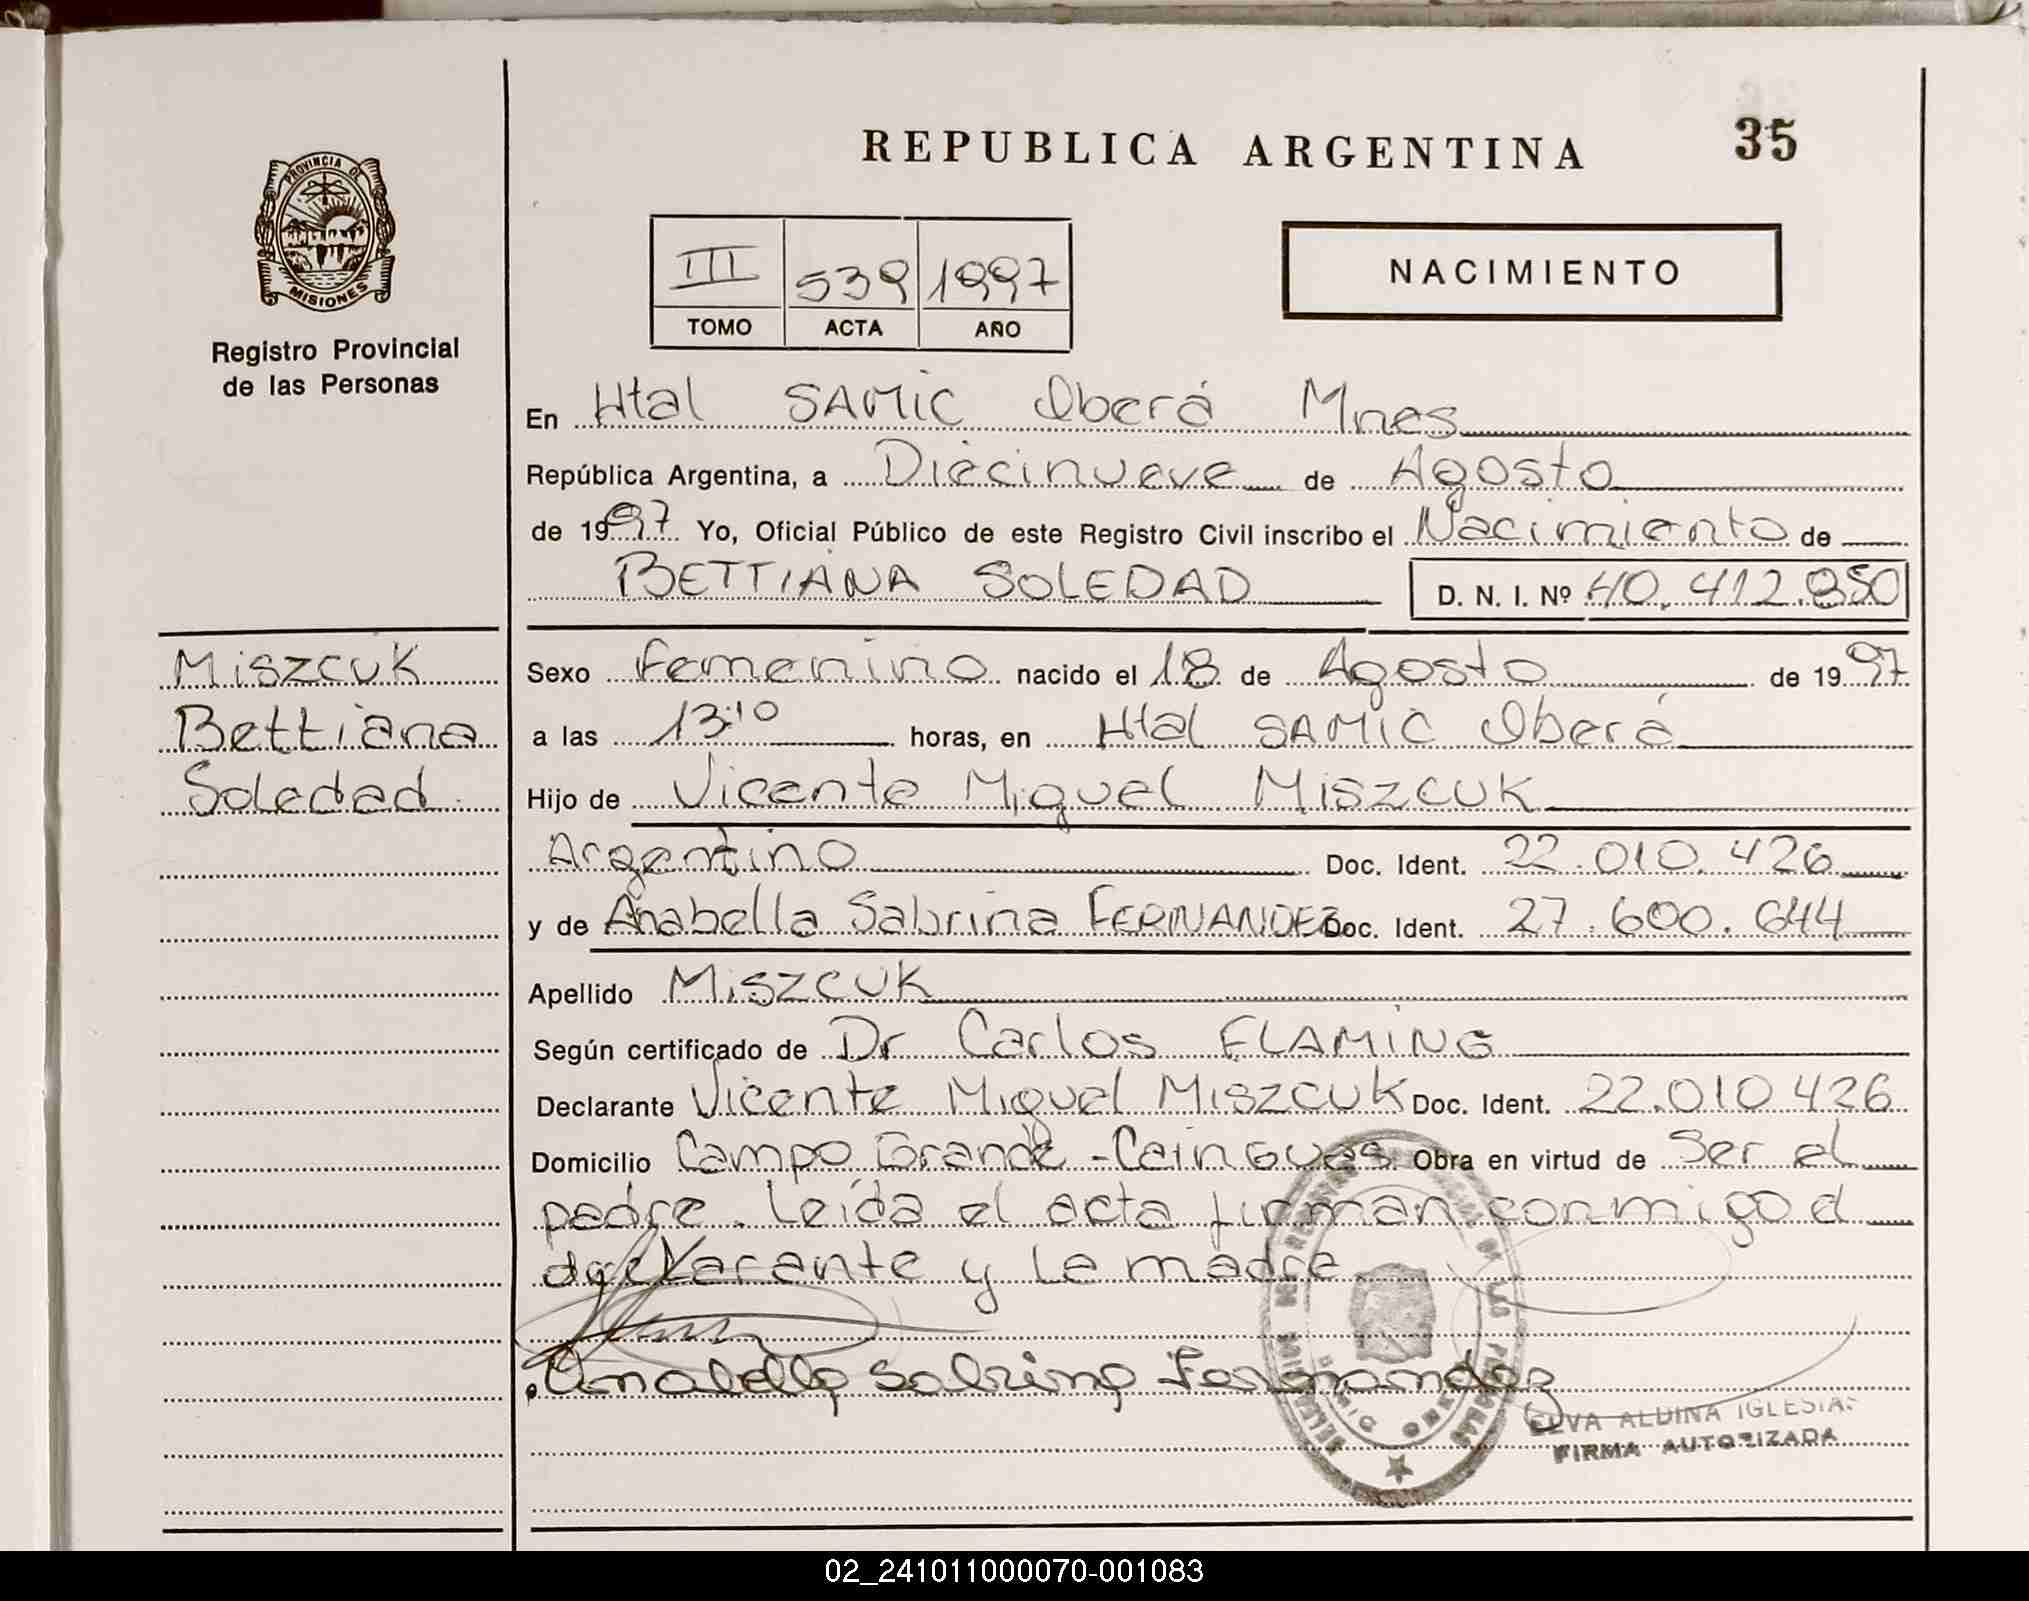 REPUBLICA ARGENTINA 35
PROVINCIA DE
MISIONES
Registro Provincial
de las Personas
III 539 1997
TOMO ACTA AÑO
NACIMIENTO
En Htal SAMIC Oberá Mnes
República Argentina, a Diecinueve de Agosto
de 1997 Yo, Oficial Público de este Registro Civil inscribo el Nacimiento de
BETTIANA SOLEDAD D. N. I. Nº 40.412.850
Miszcuk
Bettiana
Soledad
Sexo Femenino nacido el 18 de Agosto de 1997
a las 13:10 horas, en Htal SAMIC Oberá
Hijo de Vicente Miguel Miszcuk
Argentino Doc. Ident. 22.010.426
y de Anabella Sabrina FERNANDEZ Doc. Ident. 27.600.644
Apellido Miszcuk
Según certificado de Dr Carlos FLAMING
Declarante Vicente Miguel Miszcuk Doc. Ident. 22.010 426
Domicilio Campo Grande - Cainguas Obra en virtud de Ser el
padre. Leída el acta firman conmigo el
declarante y la madre
Anabella Sabrina Fernandez
ELVA ALBINA IGLESIAS
FIRMA AUTORIZADA
02_241011000070-001083